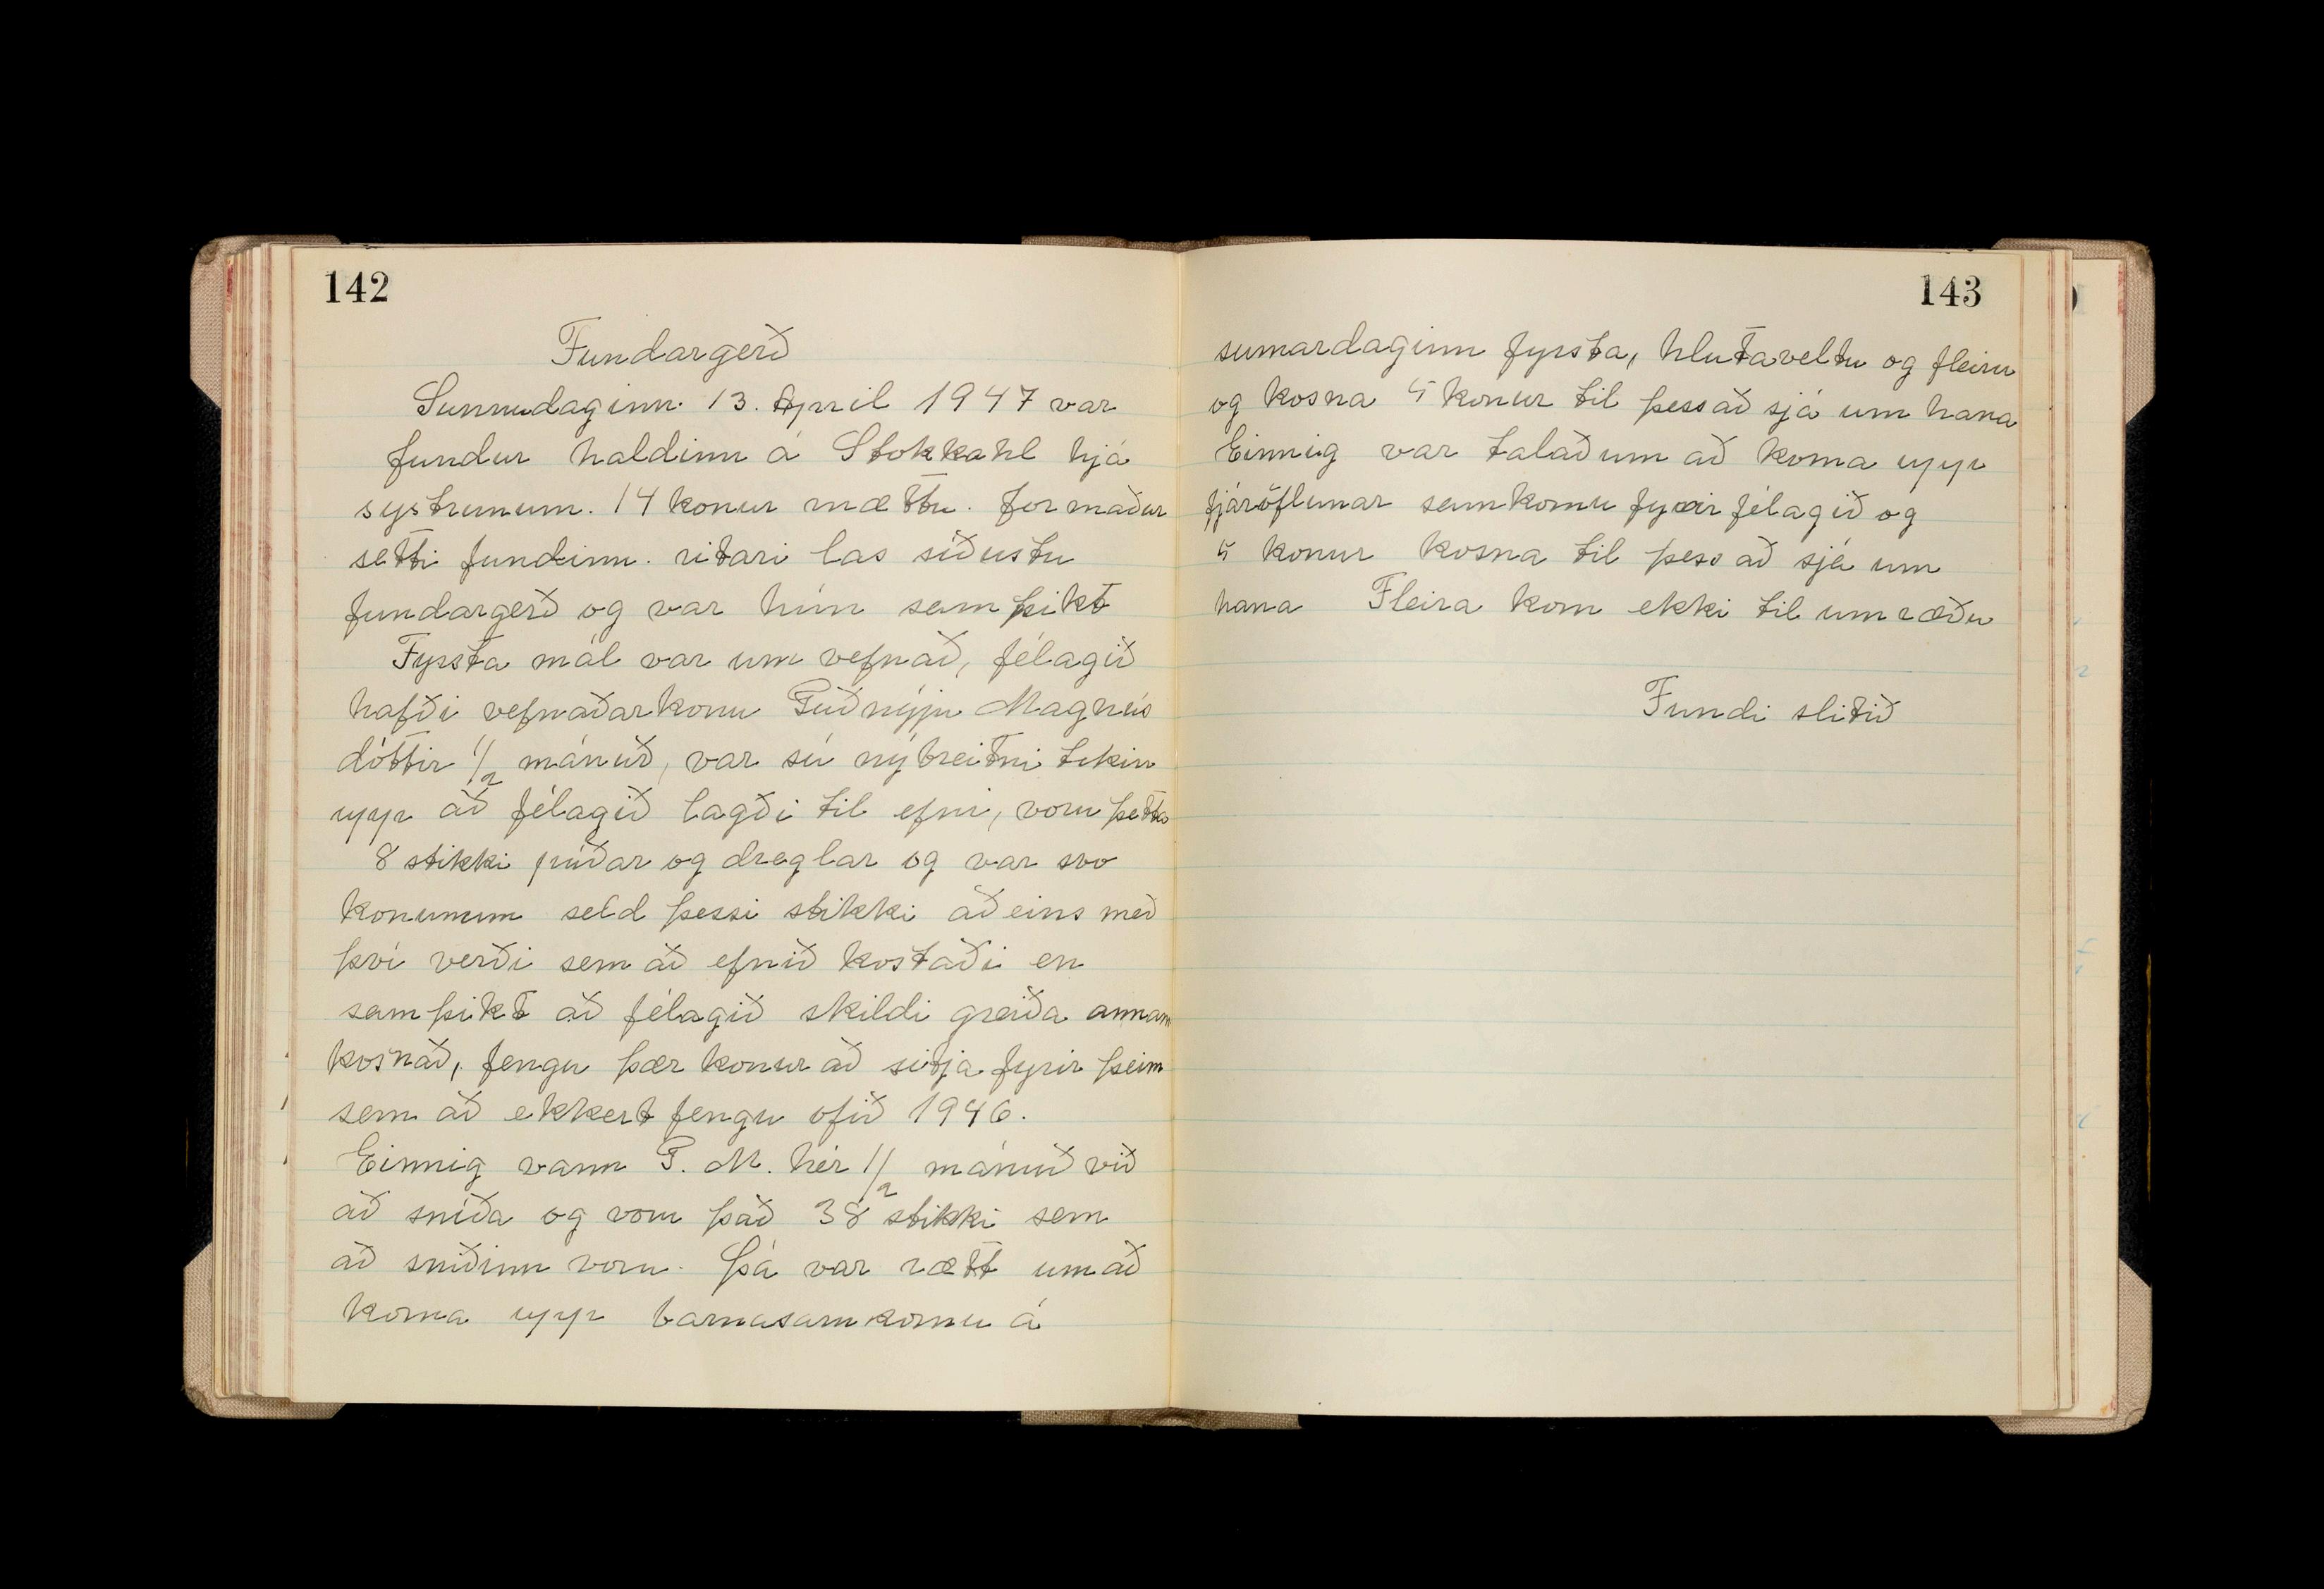 142
Fundargerð
Sunnudaginn 13. April 1947 var
fundur haldinn á Stokkahl hjá
systrunum. 14 konur mættu. formaður
setti fundinn. ritari las síðustu
fundargerð og var hún samþikt
Fyssta mál var um vefnað, félagið
hafði vefnaðarkonu Guðnýju Magnús
dóttir 1/2 mánuð, var sú nýbreitni tekin
upp að félagið lagði til efni, voru þetta
8 stikki púðar og dreglar og var svo
konunum seld þessi stikki aðeins með
því verði sem að efnið kostaði en
samþikt að félagið skildi greiða annan
kosnað, fengu þær konur að sitja fyrir þeim
sem að ekkert fengu ofið 1946.
Einnig vann G. M. hér 1/2 mánuð við
að sníða og voru það 38 stikki sem
að sniðinn voru. Þá var rætt um að
koma upp barnasamkomu á
143
sumardaginn fyrsta, hlutaveltu og fleiru
og kosna 5 konur til þess að sjá um hana
Einnig var talað um að koma upp
fjáröflunar samkomu fyrir félagið og
5 konur kosna til þess að sjá um
hana Fleira kom ekki til umræðu
Fundi slitið